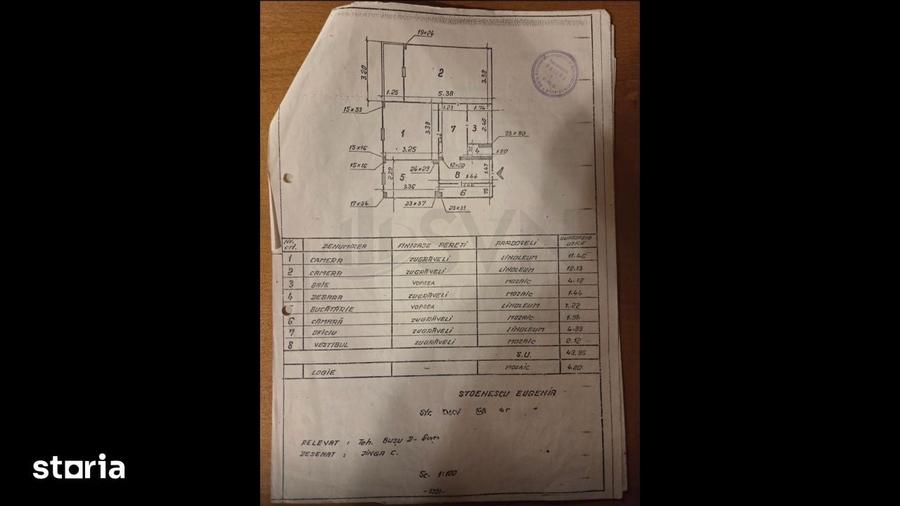 19×26
3.20
2
3.30
1.25
5.38
15×33
1.23
1.74
1
3.38
7
3
2.40
3.25
15×16
15×16
2.20
5
26×29
8
1.44
1.47
3.36
6
17×26
23×37
23×31
NR. CRT. DENUMIREA FINISAJE PERETI PARDOSELI SUPRAFATA UTILE
1 CAMERA ZUGRĂVELI LINOLEUM 11.46
2 CAMERA ZUGRĂVELI LINOLEUM
3 BAIE VOPSEA MOZAIC 4.12
4 DEBARA ZUGRĂVELI MOZAIC 1.44
BUCĂTĂRIE VOPSEA LINOLEUM
6 CĂMARĂ ZUGRĂVELI MOZAIC
7 OFICIU ZUGRĂVELI LINOLEUM
8 VESTIBUL ZUGRĂVELI MOZAIC 2.12
S.U. 43.95
LOGIE — MOZAIC 4.20
STOENESCU EUGENIA
RELEVAT : Teh. BUȘU D.
DESENAT : JINGA C.
Sc. 1:100
storia